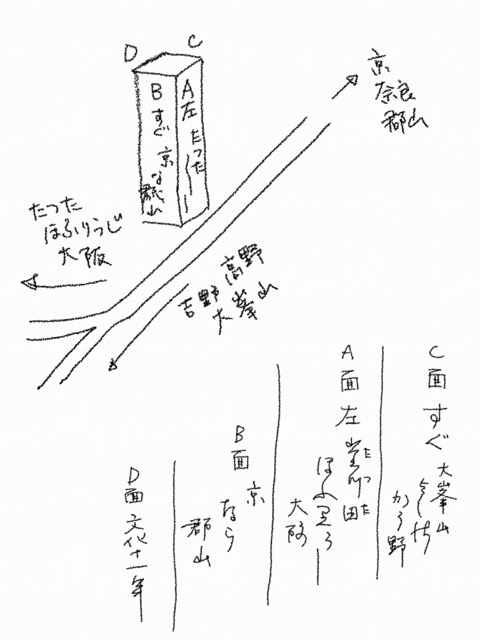 D
C
B
すぐ
京
なら
郡山
A
左
たつた
京
奈良
郡山
たつた
ほふりうじ
大阪
高野
吉野
大峯山
C面すぐ
大峯山
よしの
かう野
A面左
たつた
田
大阪
B面京
なら
郡山
D面文化十一年